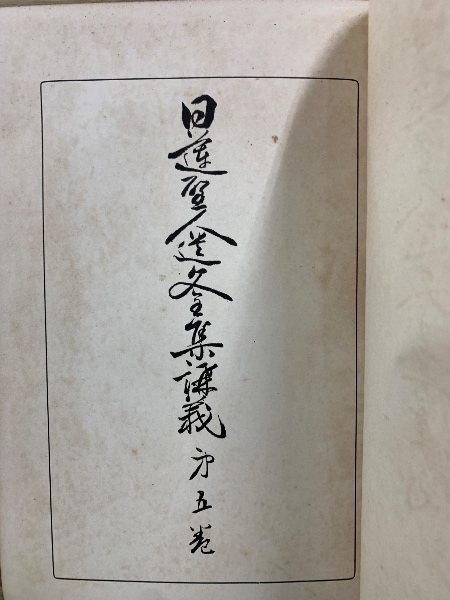 日蓮聖人遺文全集講義 第五巻